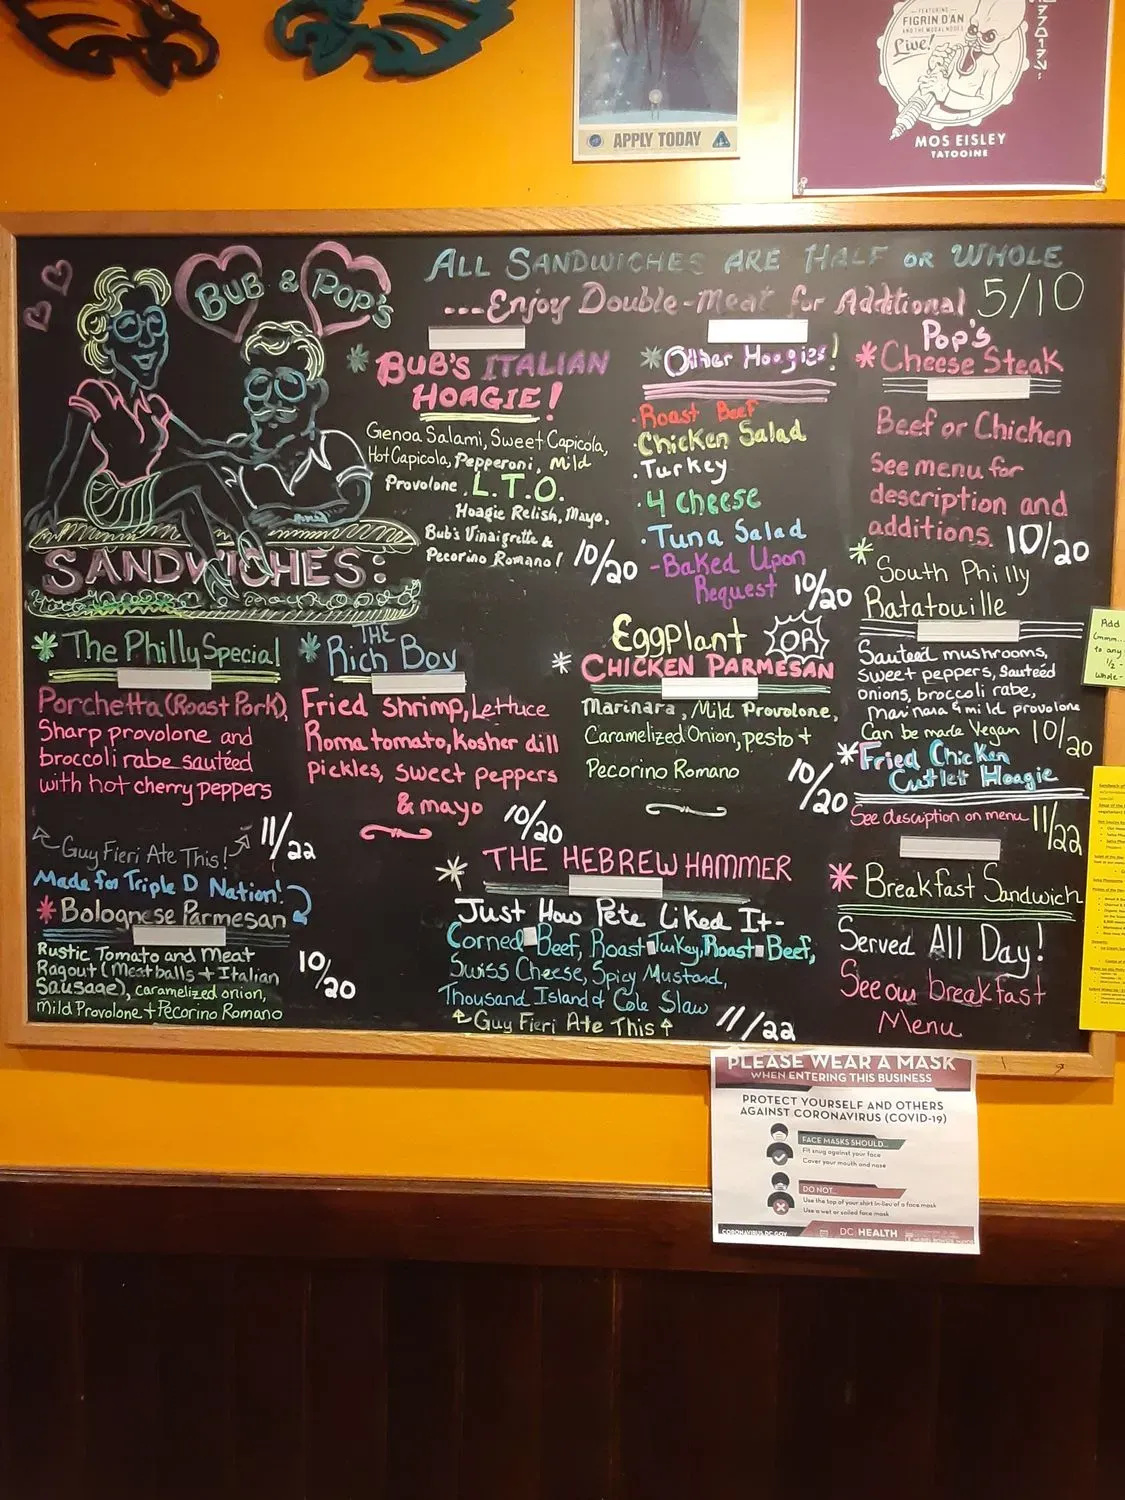 APPLY TODAY
FEATURING
FIGRIN D'AN
AND THE MODAL NODES
Live!
MOS EISLEY
TATOOINE
BUB & POP'S
SANDWICHES:
ALL SANDWICHES ARE HALF OR WHOLE
...Enjoy Double-Meat for Additional 5/10
* BUB'S ITALIAN
HOAGIE!
Genoa Salami, Sweet Capicola,
Hot Capicola, Pepperoni, Mild
Provolone, L.T.O.
Hoagie Relish, Mayo,
Bub's Vinaigrette &
Pecorino Romano! 10/20
* Other Hoagies!
· Roast Beef
· Chicken Salad
· Turkey
· 4 Cheese
· Tuna Salad
- Baked Upon
Request 10/20
Pop's
* Cheese Steak
Beef or Chicken
See menu for
description and
additions. 10/20
* South Philly
Ratatouille
Sauteed mushrooms,
sweet peppers, Sauteéd
onions, broccoli rabe,
marinara & mild provolone
Can be made Vegan 10/20
* The Philly Special
Porchetta (Roast Pork),
Sharp provolone and
broccoli rabe sautéed
with hot cherry peppers
11/22
Guy Fieri Ate This!
* THE
Rich Boy
Fried shrimp, Lettuce
Roma tomato, kosher dill
pickles, sweet peppers
& mayo 10/20
Eggplant OR
* CHICKEN PARMESAN
Marinara, Mild Provolone,
Caramelized Onion, pesto +
Pecorino Romano
10/20
* Fried Chicken
Cutlet Hoagie
See description on menu 11/22
Made for Triple D Nation!
* Bolognese Parmesan
Rustic Tomato and Meat
Ragout (Meatballs + Italian
Sausage), caramelized onion,
mild Provolone + Pecorino Romano
10/20
* THE HEBREW HAMMER
Just How Pete Liked It-
Corned Beef, Roast Turkey, Roast Beef,
Swiss Cheese, Spicy Mustard,
Thousand Island & Cole Slaw
Guy Fieri Ate This 11/22
* Breakfast Sandwich
Served All Day!
See our breakfast
Menu
Add
to any
1/2 -
whole -
PLEASE WEAR A MASK
WHEN ENTERING THIS BUSINESS
PROTECT YOURSELF AND OTHERS
AGAINST CORONAVIRUS (COVID-19)
FACE MASKS SHOULD...
Fit snug against your face
Cover your mouth and nose
DO NOT...
Use the top of your shirt in-lieu of a face mask
Use a wet or soiled face mask
CORONAVIRUS.DC.GOV
DC HEALTH